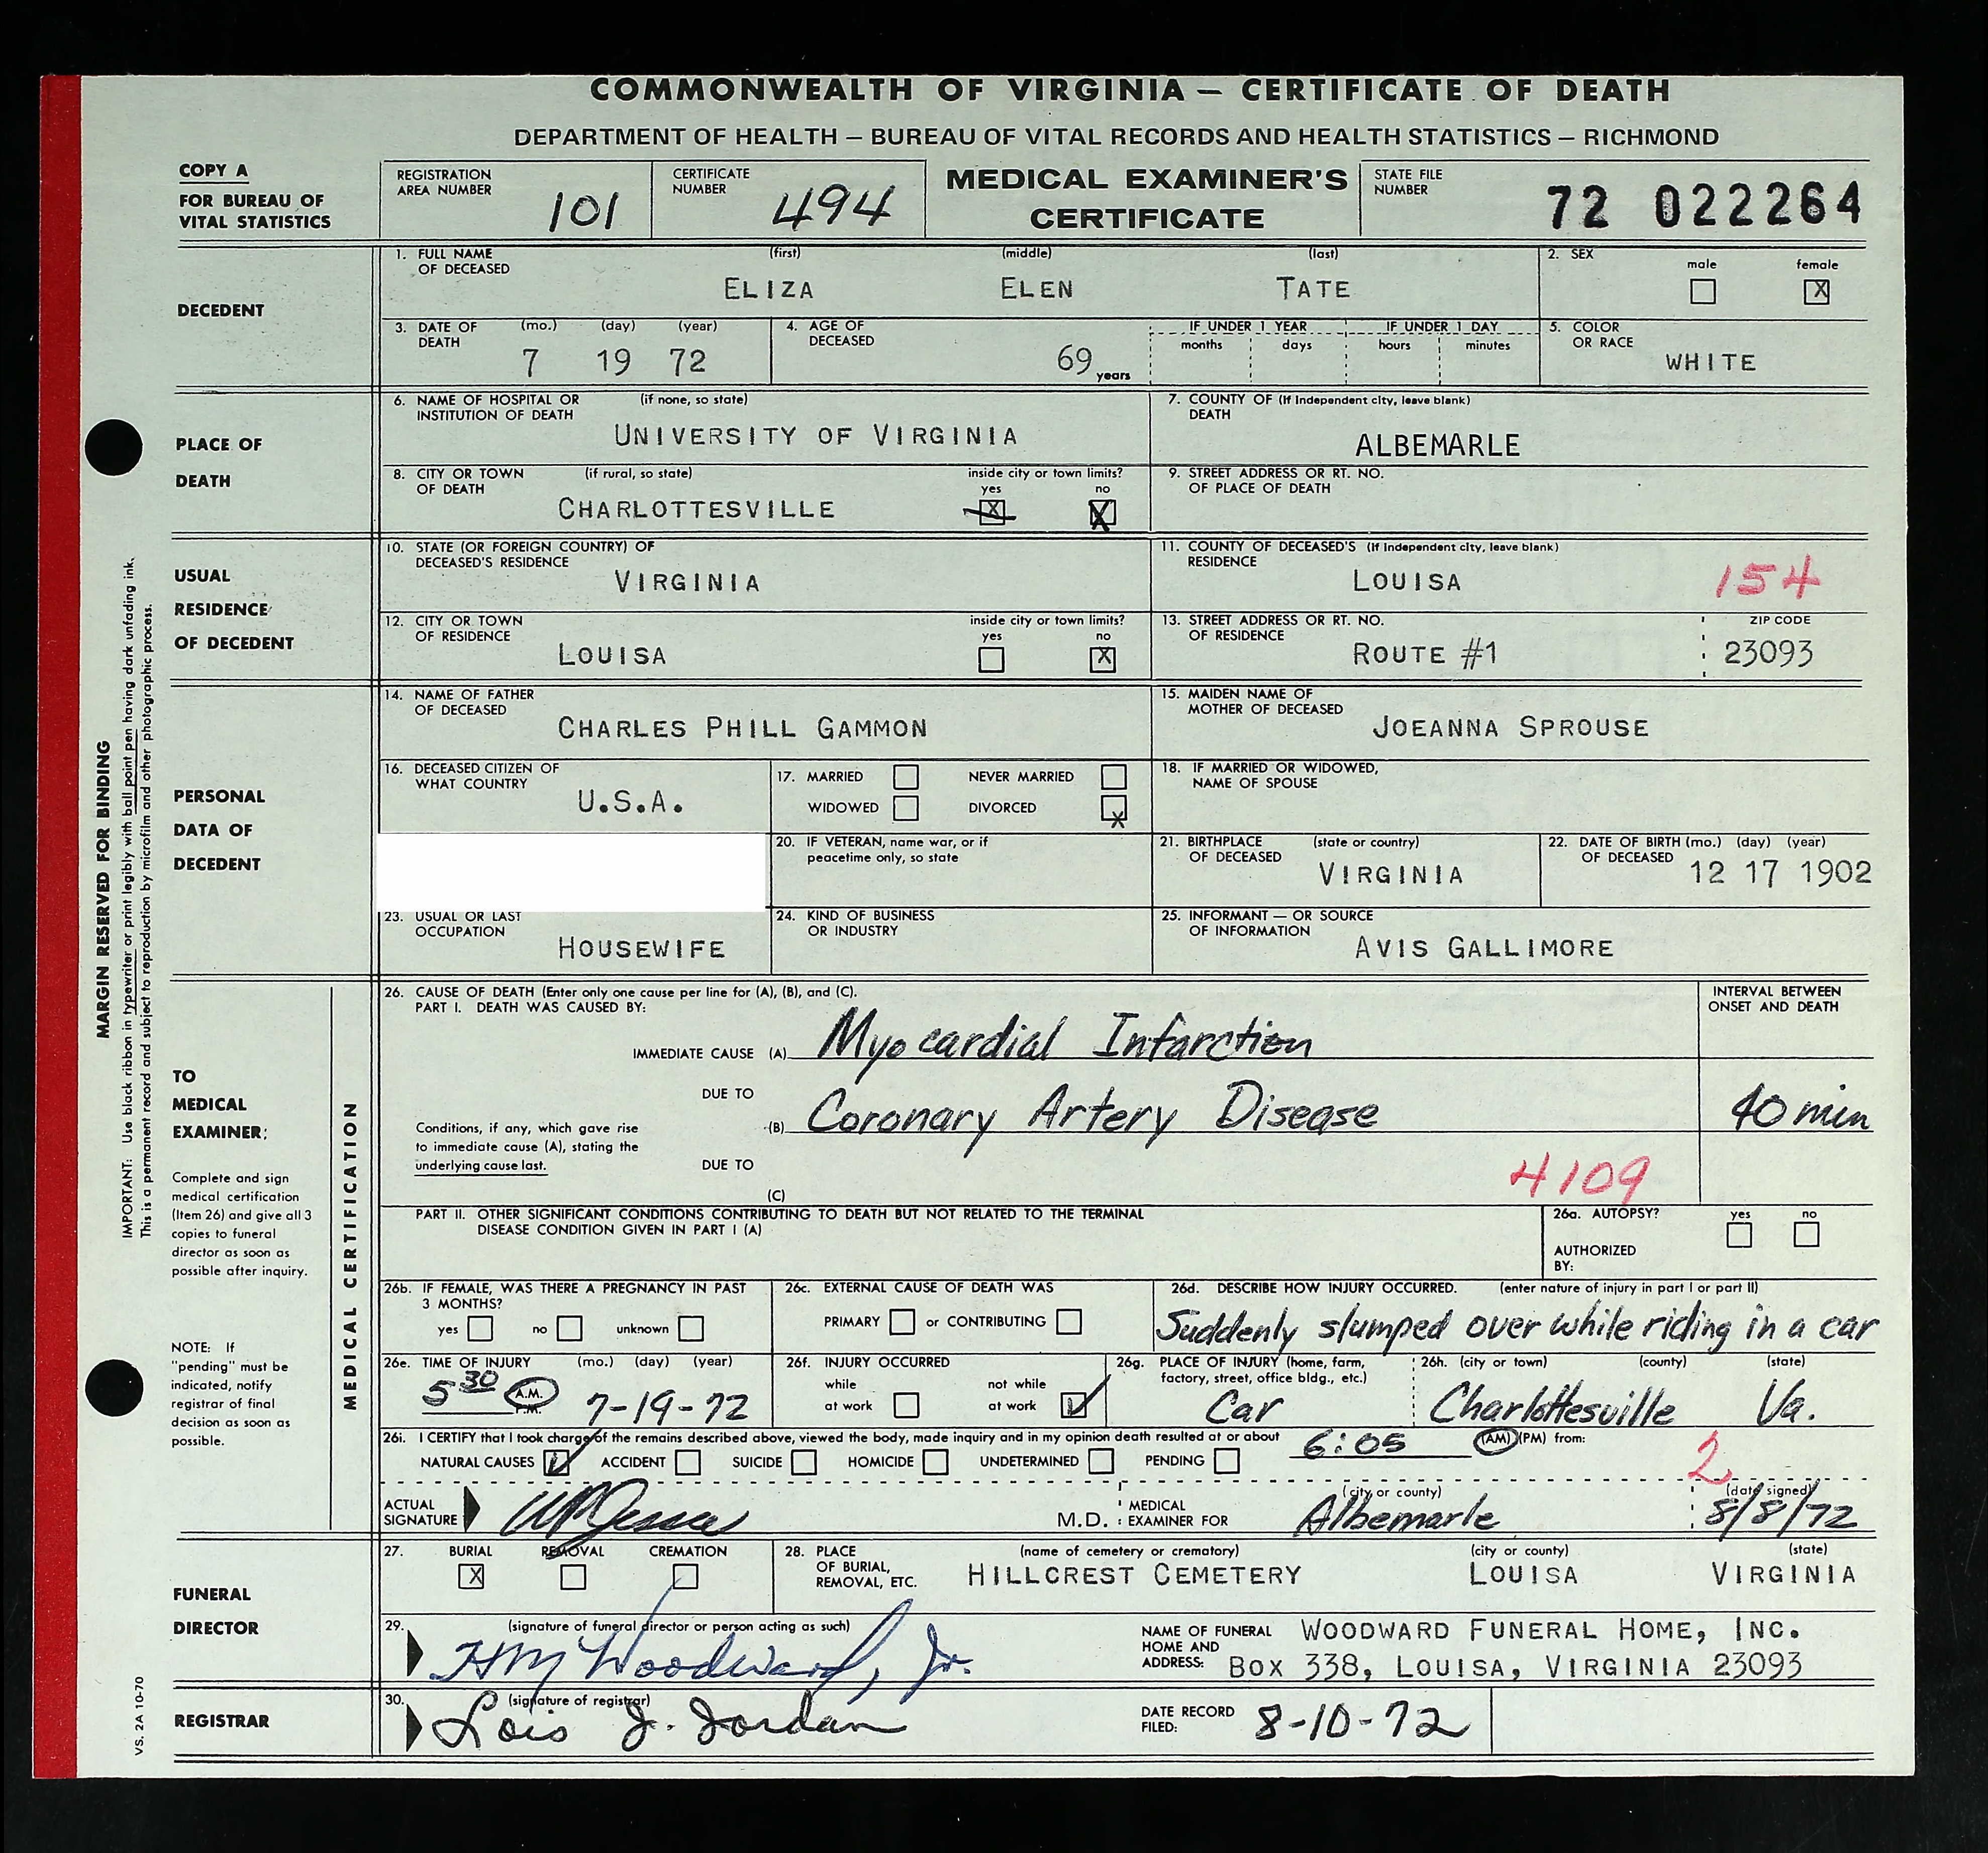 COMMONWEALTH OF VIRGINIA — CERTIFICATE OF DEATH
DEPARTMENT OF HEALTH — BUREAU OF VITAL RECORDS AND HEALTH STATISTICS — RICHMOND
COPY A
FOR BUREAU OF
VITAL STATISTICS
REGISTRATION
AREA NUMBER
101
CERTIFICATE
NUMBER
494
MEDICAL EXAMINER'S
CERTIFICATE
STATE FILE
NUMBER
72 022264
DECEDENT
1. FULL NAME (first) (middle) (last)
OF DECEASED
ELIZA ELEN TATE
2. SEX
male female
X
3. DATE OF (mo.) (day) (year)
DEATH
7 19 72
4. AGE OF
DECEASED
69 years
IF UNDER 1 YEAR IF UNDER 1 DAY
months days hours minutes
5. COLOR
OR RACE
WHITE
PLACE OF
DEATH
6. NAME OF HOSPITAL OR (if none, so state)
INSTITUTION OF DEATH
UNIVERSITY OF VIRGINIA
7. COUNTY OF (If Independent city, leave blank)
DEATH
ALBEMARLE
8. CITY OR TOWN (if rural, so state) inside city or town limits?
OF DEATH yes no
CHARLOTTESVILLE X X
9. STREET ADDRESS OR RT. NO.
OF PLACE OF DEATH
USUAL
RESIDENCE
OF DECEDENT
10. STATE (OR FOREIGN COUNTRY) OF
DECEASED'S RESIDENCE
VIRGINIA
11. COUNTY OF DECEASED'S (If Independent city, leave blank)
RESIDENCE
LOUISA 154
12. CITY OR TOWN inside city or town limits?
OF RESIDENCE yes no
LOUISA X
13. STREET ADDRESS OR RT. NO. ZIP CODE
OF RESIDENCE
ROUTE #1 23093
PERSONAL
DATA OF
DECEDENT
14. NAME OF FATHER
OF DECEASED
CHARLES PHILL GAMMON
15. MAIDEN NAME OF
MOTHER OF DECEASED
JOEANNA SPROUSE
16. DECEASED CITIZEN OF
WHAT COUNTRY
U.S.A.
17. MARRIED NEVER MARRIED
WIDOWED DIVORCED X
18. IF MARRIED OR WIDOWED,
NAME OF SPOUSE
20. IF VETERAN, name war, or if
peacetime only, so state
21. BIRTHPLACE (state or country)
OF DECEASED
VIRGINIA
22. DATE OF BIRTH (mo.) (day) (year)
OF DECEASED 12 17 1902
23. USUAL OR LAST
OCCUPATION
HOUSEWIFE
24. KIND OF BUSINESS
OR INDUSTRY
25. INFORMANT — OR SOURCE
OF INFORMATION
AVIS GALLIMORE
TO
MEDICAL
EXAMINER:
Complete and sign
medical certification
(Item 26) and give all 3
copies to funeral
director as soon as
possible after inquiry.
NOTE: If
"pending" must be
indicated, notify
registrar of final
decision as soon as
possible.
MEDICAL CERTIFICATION
26. CAUSE OF DEATH (Enter only one cause per line for (A), (B), and (C).
PART I. DEATH WAS CAUSED BY:
INTERVAL BETWEEN
ONSET AND DEATH
IMMEDIATE CAUSE (A) Myocardial Infarction
DUE TO
Conditions, if any, which gave rise
to immediate cause (A), stating the
underlying cause last.
(B) Coronary Artery Disease 40 min
DUE TO
(C)
4109
PART II. OTHER SIGNIFICANT CONDITIONS CONTRIBUTING TO DEATH BUT NOT RELATED TO THE TERMINAL
DISEASE CONDITION GIVEN IN PART I (A)
26a. AUTOPSY? yes no
AUTHORIZED
BY:
26b. IF FEMALE, WAS THERE A PREGNANCY IN PAST
3 MONTHS?
yes no unknown
26c. EXTERNAL CAUSE OF DEATH WAS
PRIMARY or CONTRIBUTING
26d. DESCRIBE HOW INJURY OCCURRED. (enter nature of injury in part I or part II)
Suddenly slumped over while riding in a car
26e. TIME OF INJURY (mo.) (day) (year)
5 30 A.M. P.M. 7-19-72
26f. INJURY OCCURRED
while not while
at work at work
26g. PLACE OF INJURY (home, farm,
factory, street, office bldg., etc.)
Car
26h. (city or town) (county) (state)
Charlottesville Va.
26i. I CERTIFY that I took charge of the remains described above, viewed the body, made inquiry and in my opinion death resulted at or about 6:05 (AM) (PM) from:
NATURAL CAUSES ACCIDENT SUICIDE HOMICIDE UNDETERMINED PENDING
2
ACTUAL
SIGNATURE
M.D.
MEDICAL
EXAMINER FOR
(city or county)
Albemarle
(date signed)
8/8/72
FUNERAL
DIRECTOR
27. BURIAL REMOVAL CREMATION
X
28. PLACE
OF BURIAL,
REMOVAL, ETC.
(name of cemetery or crematory) (city or county) (state)
HILLCREST CEMETERY LOUISA VIRGINIA
29. (signature of funeral director or person acting as such)
HM Woodward, Jr.
NAME OF FUNERAL
HOME AND
ADDRESS:
WOODWARD FUNERAL HOME, INC.
BOX 338, LOUISA, VIRGINIA 23093
REGISTRAR
30. (signature of registrar)
Lois J. Jordan
DATE RECORD
FILED:
8-10-72
MARGIN RESERVED FOR BINDING
IMPORTANT: Use black ribbon in typewriter or print legibly with ball point pen having dark unfading ink.
This is a permanent record and subject to reproduction by microfilm and other photographic process.
VS. 2A 10-70